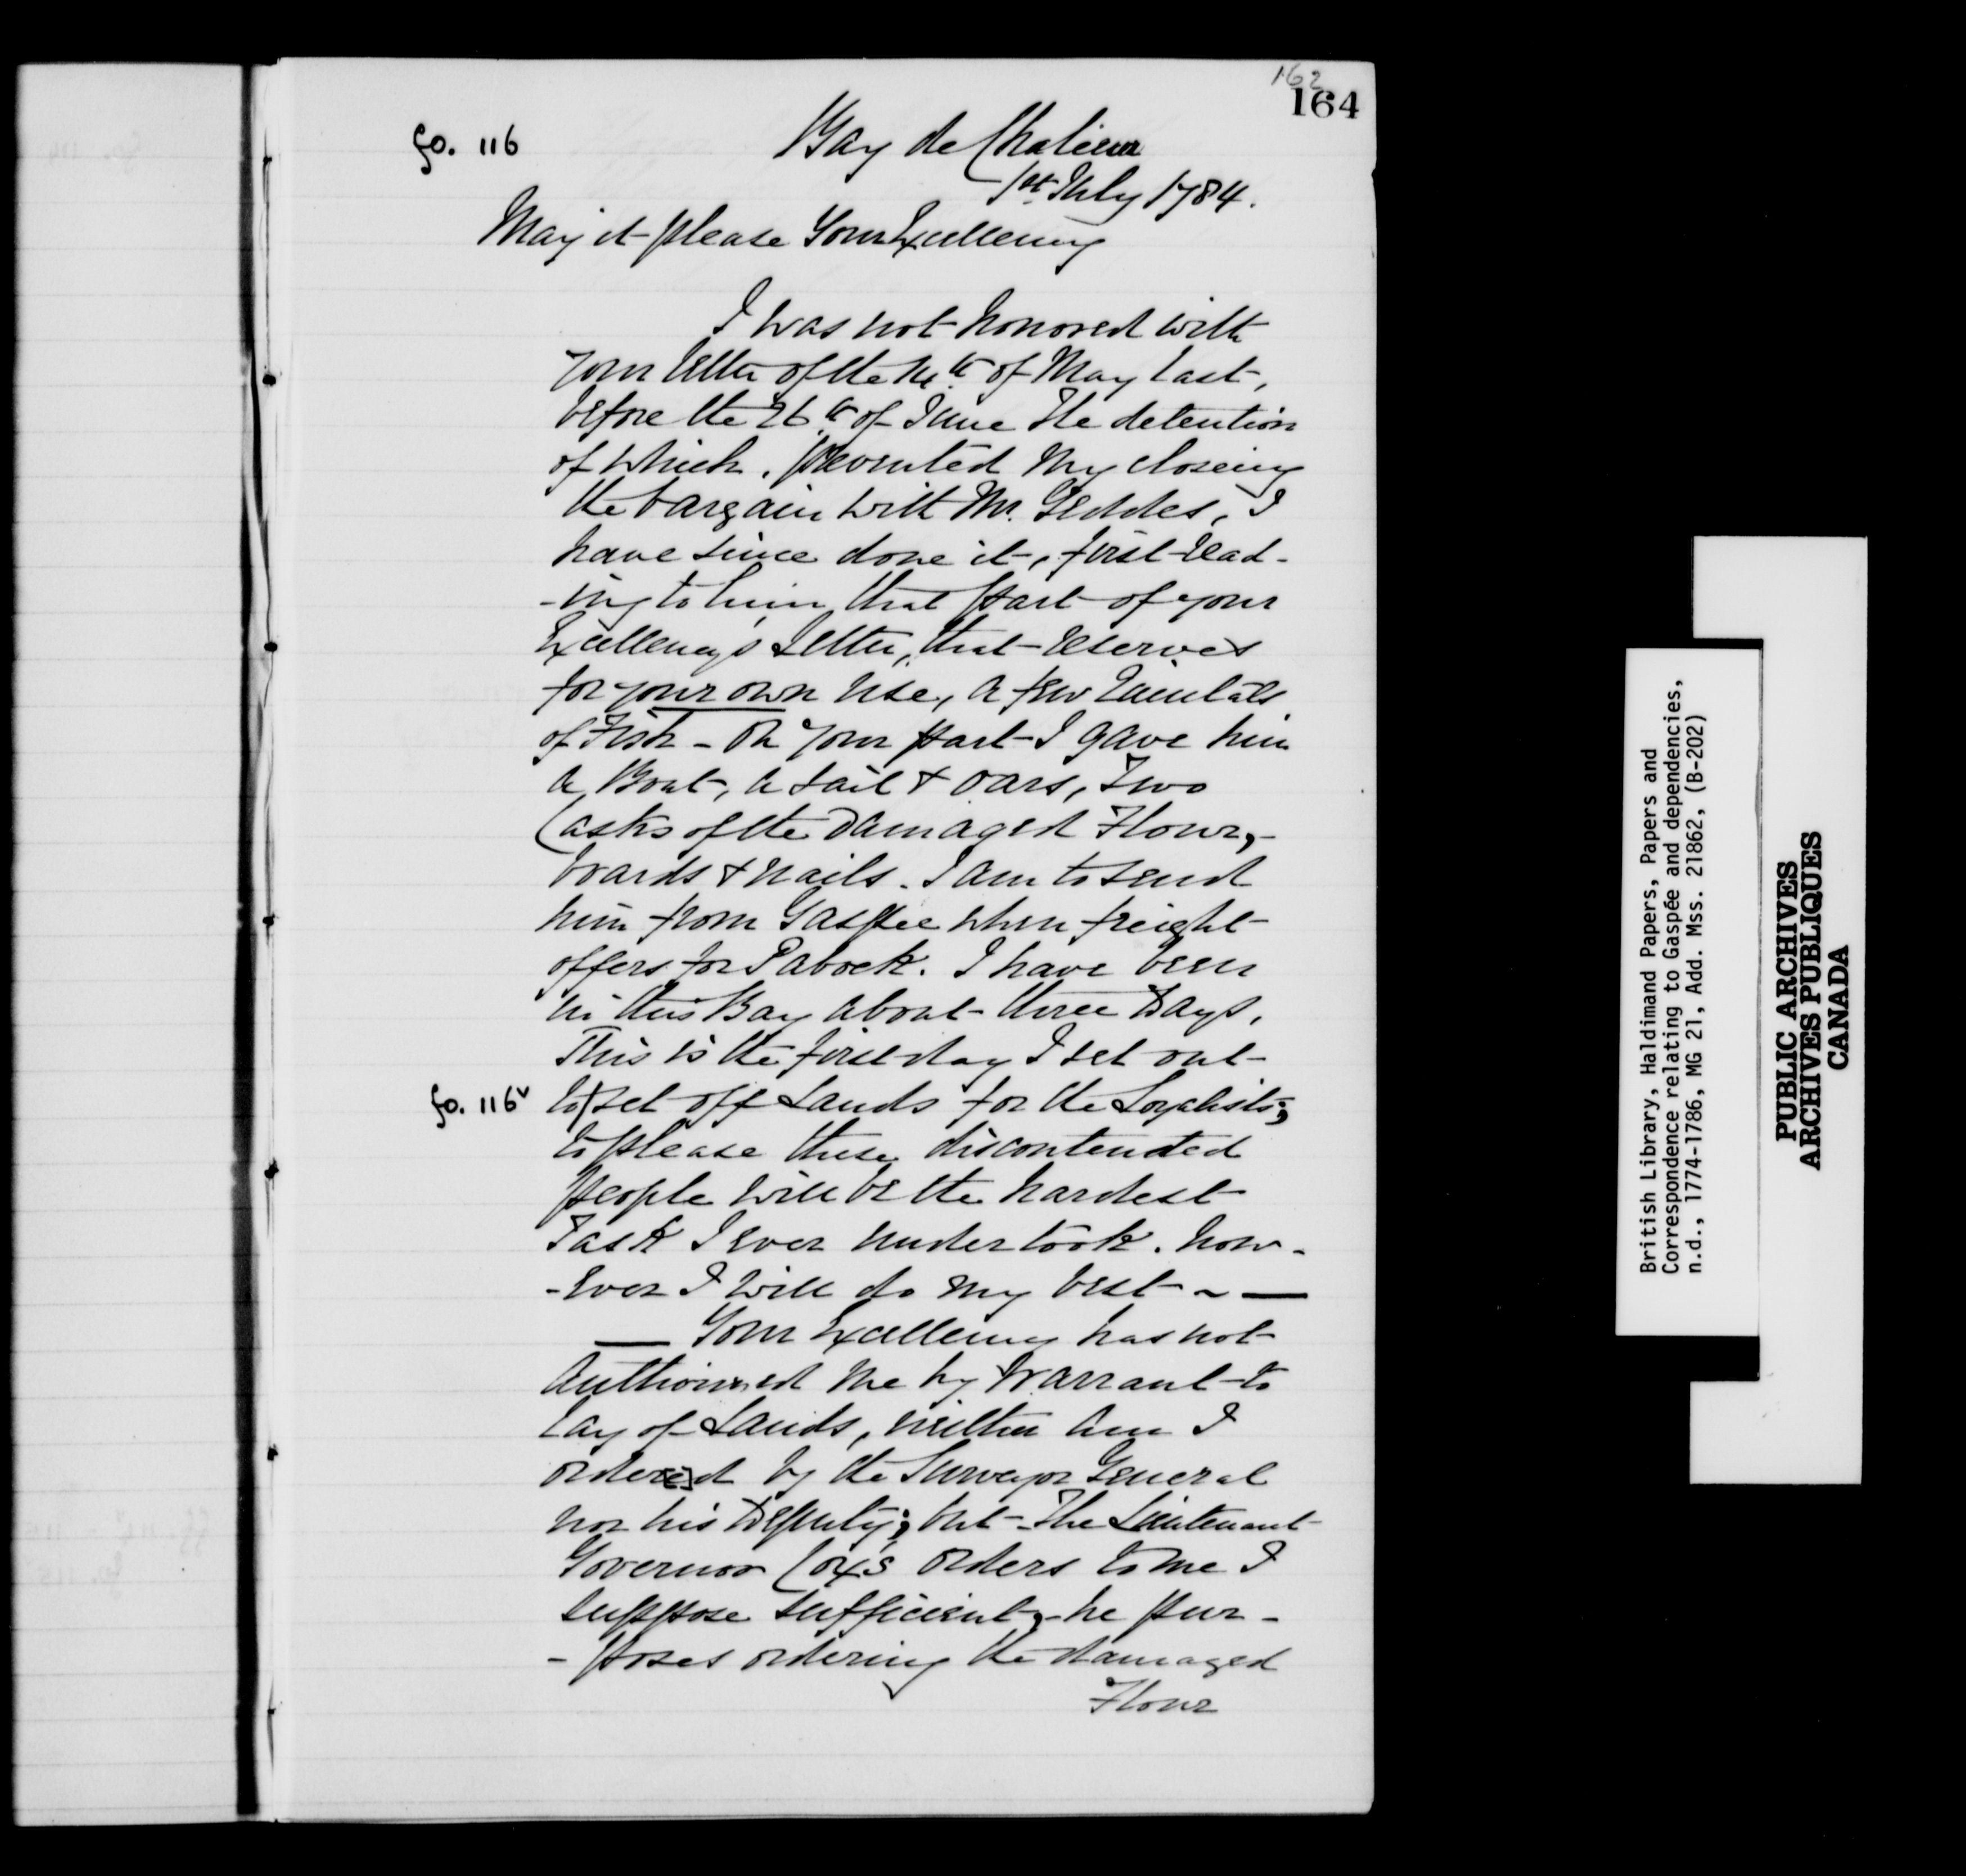 162
164
fo. 116
Bay de Chaleur
1st July 1784.
May it please Your Excellency
I was not honored with
your letter of the of May last,
before the 26th of June The detention
of which, prevented my closeing
the bargain with Mr. Geddes, I
have since done it, first read-
-ing to him that part of your
Excellency's Letter, that reserves
for your own use, a few Quintals
of Fish - On your part I gave him
a Boat, a sail & oars, Two
Casks of the Damaged Flour,-
boards & nails. I am to send
him from Gaspee when freight
offers for Pabock. I have been
in this Bay about three Days,
This is the first day I set out
fo. 116v to/set off Lands for the Loyalists;
to please these discontented
people will be the hardest
Task I ever undertook. how-
-ever I will do my best ~ —
— Your Excellency has not
Authorized me by Warrant to
lay of Lands, neither am I
order[e]d by the Surveyor General
nor his Deputy; but The Lieutenant
Governor Cox's orders to me I
suppose sufficient,-he pur-
-poses ordering the damaged
Flour
British Library, Haldimand Papers, Papers and
Correspondence relating to Gaspée and dependencies,
n.d., 1774-1786, MG 21, Add. Mss. 21862, (B-202)
PUBLIC ARCHIVES
ARCHIVES PUBLIQUES
CANADA